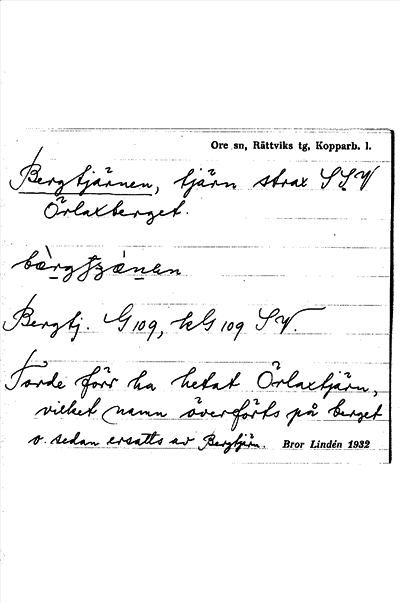 Ore sn, Rättviks tg, Kopparb. l.
Bergtjärnen, tjärn strax SSV
Örlaxberget.
Bergtj. G 109, kG 109 SV.
Torde förr ha hetat Örlaxtjärn,
vilket namn överförts på berget
o. sedan ersatts av Bergtjärn. Bror Lindén 1932